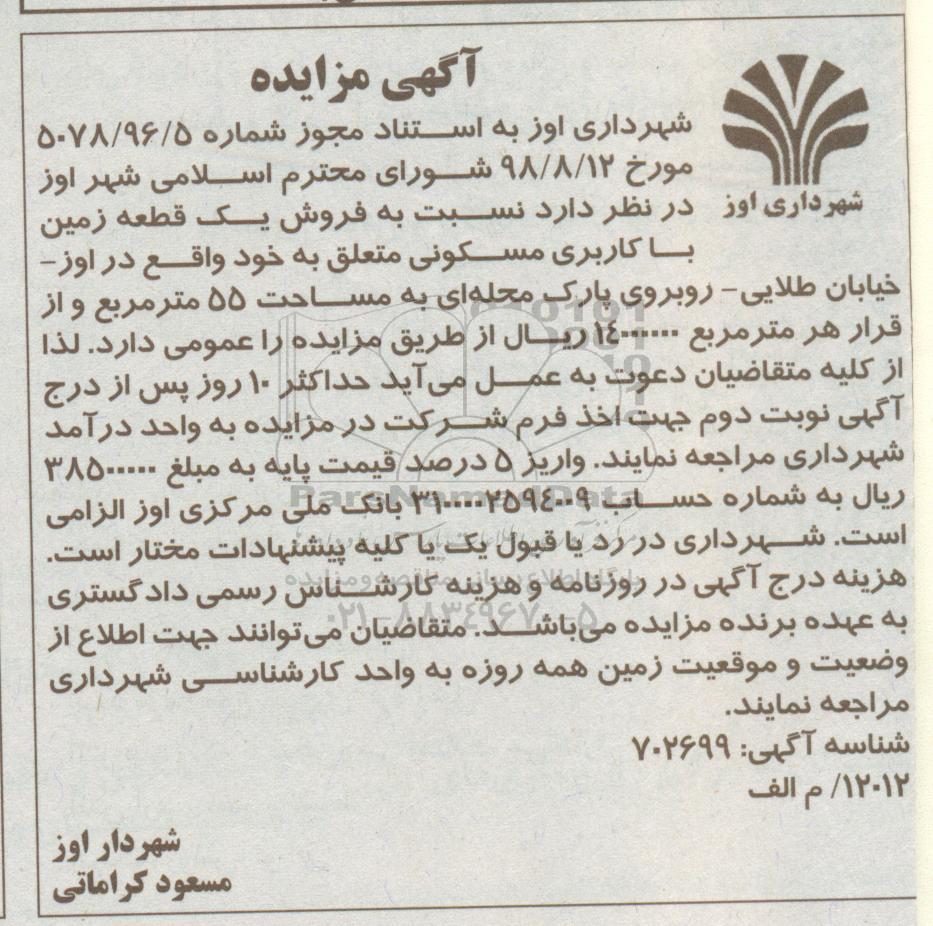 آگهی مزایده
شهرداری اوز
شهرداری اوز به استناد مجوز شماره ۵۰۷۸/۹۶/۵
مورخ ۹۸/۸/۱۲ شورای محترم اسلامی شهر اوز
در نظر دارد نسبت به فروش یک قطعه زمین
با کاربری مسکونی متعلق به خود واقع در اوز-
خیابان طلایی- روبروی پارک محله‌ای به مساحت ۵۵ مترمربع و از
قرار هر مترمربع ۱۴۰۰۰۰۰۰ ریال از طریق مزایده را عمومی دارد. لذا
از کلیه متقاضیان دعوت به عمل می‌آید حداکثر ۱۰ روز پس از درج
آگهی نوبت دوم جهت اخذ فرم شرکت در مزایده به واحد درآمد
شهرداری مراجعه نمایند. واریز ۵ درصد قیمت پایه به مبلغ ۳۸۵۰۰۰۰۰
ریال به شماره حساب ۳۱۰۰۰۰۲۵۹۴۰۰۹ بانک ملی مرکزی اوز الزامی
است. شهرداری در رد یا قبول یک یا کلیه پیشنهادات مختار است.
هزینه درج آگهی در روزنامه و هزینه کارشناس رسمی دادگستری
به عهده برنده مزایده می‌باشد. متقاضیان می‌توانند جهت اطلاع از
وضعیت و موقعیت زمین همه روزه به واحد کارشناسی شهرداری
مراجعه نمایند.
شناسه آگهی: ۷۰۲۶۹۹
۱۲۰۱۲/ م الف
شهردار اوز
مسعود کراماتی
ParsNamadData
۰۲۱-۸۸۳۴۹۶۷۰-۵